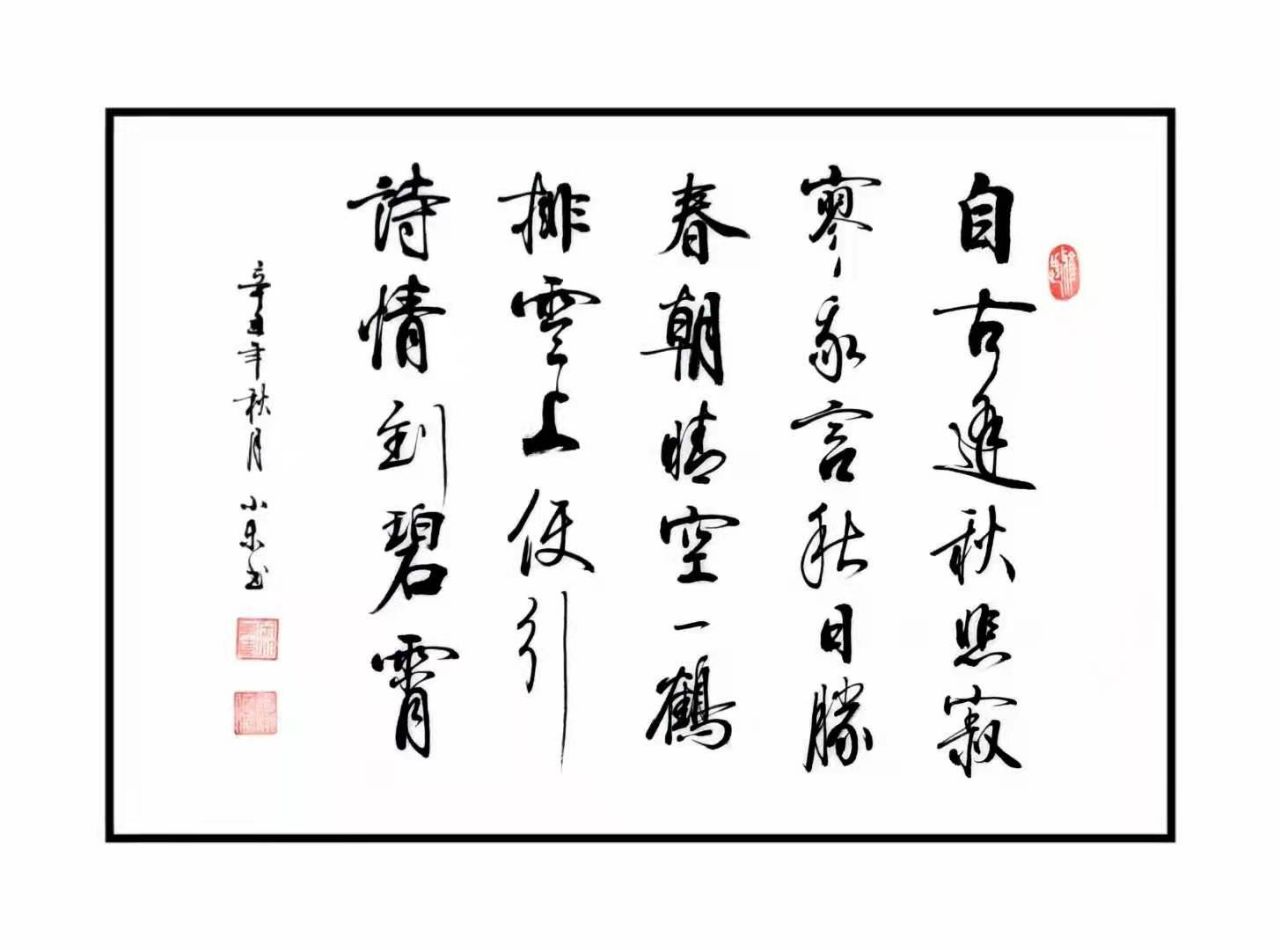 自古逢秋悲寂
寥我言秋日勝
春朝晴空一鶴
排雲上便引
詩情到碧霄
辛丑年秋月小東书